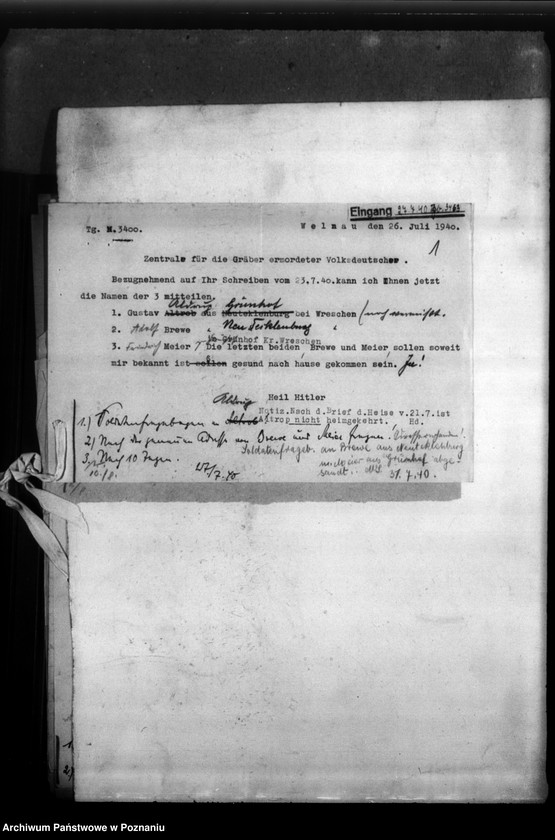 Eingang
Tg. N.3400. Welmau den 26. Juli 1940.
1
Zentrale für die Gräber ermordeter Volksdeutscher.
Bezugnehmend auf Ihr Schreiben vom 23.7.40.kann ich Ihnen jetzt
die Namen der 3 mitteilen.
Grünhof
1. Gustav Altreb aus Neuteklenburg bei Wreschen (noch vermisst.
2. Adolf Brewe " Neu Tecklenburg "
Grünhof Kr.Wreschen
3. Friedrich Meier / Die letzten beiden Brewe und Meier sollen soweit
mir bekannt ist sollen gesund nach hause gekommen sein. Ja!
Heil Hitler
Notiz.Nach d.Brief d.Heise v.21.7.ist
Altrop nicht heimgekehrt. Ed.
1.)
2) Nach der genauen Adresse von Brewe und Meier fragen.
Soldatenfrageb. an Brewe aus Neutecklenburg
3) Nach 10 Tagen.
und Meier aus Grünhof abge-
27/7.40
sandt. 31.7.40.
10/8.
1
2)
Archiwum Państwowe w Poznaniu